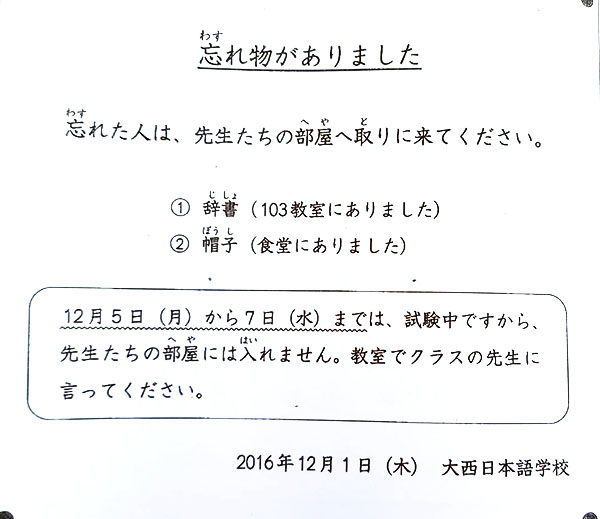 忘れ物がありました
忘れた人は、先生たちの部屋へ取りに来てください。
① 辞書（103教室にありました）
② 帽子（食堂にありました）
12月5日（月）から7日（水）までは、試験中ですから、
先生たちの部屋には入れません。教室でクラスの先生に
言ってください。
2016年12月1日（木） 大西日本語学校